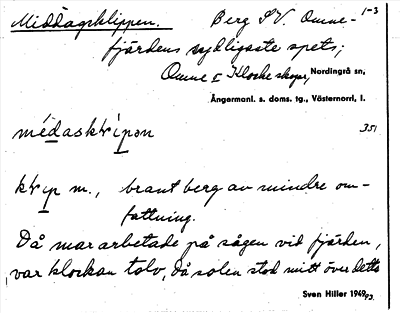 Middagsklippen. Berg SV. Omne- 1-3
fjärdens sydligaste spets;
Omne o. Klocke skogar, Nordingrå sn,
Ångermanl. s. doms. tg., Västernorrl. l.
351
brant berg av mindre om-
fattning.
Då mar arbetade på sågen vid fjärden,
var klockan tolv, då solen stod mitt över detta
Sven Hiller 1949